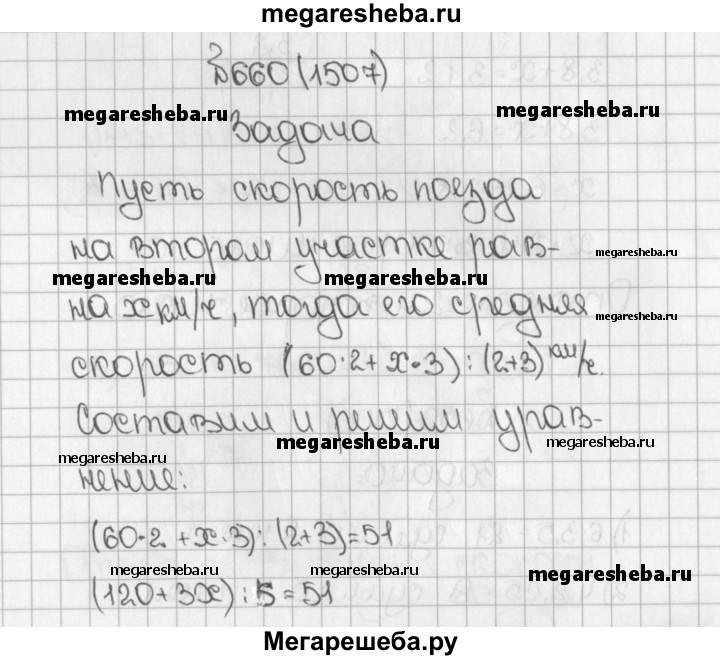 megaresheba.ru
№660(1507)
megaresheba.ru
megaresheba.ru
Задача
Пусть скорость поезда
на втором участке рав-
megaresheba.ru
megaresheba.ru
megaresheba.ru
на x км/ч, тогда его средняя
megaresheba.ru
скорость (60·2+x·3):(2+3) км/ч.
Составим и решим урав-
megaresheba.ru
megaresheba.ru
megaresheba.ru
нение:
(60·2+x·3):(2+3)=51
megaresheba.ru
megaresheba.ru
megaresheba.ru
(120+3x):5=51
Мегарешеба.ру